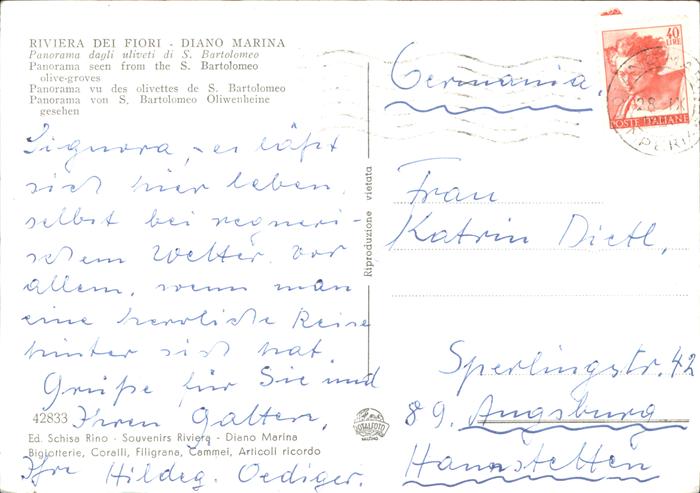 RIVIERA DEI FIORI - DIANO MARINA
Panorama dagli uliveti di S. Bartolomeo
Panorama seen from the S. Bartolomeo
olive-groves
Panorama vu des olivettes de S. Bartolomeo
Panorama von S. Bartolomeo Oliwenheine
gesehen
Signora, - es läßt
sich hier leben,
selbst bei regneri-
schem Wetter. Vor
allem, wenn man
eine herrliche Reise
hinter sich hat.
Grüße für Sie und
Ihren Gatten,
Ihre Hildeg. Oediger.
42833
Ed. Schisa Rino - Souvenirs Riviera - Diano Marina
Bigiotterie, Coralli, Filigrana, Cammei, Articoli ricordo
Riproduzione vietata
40
LIRE
POSTE ITALIANE
28
Germania.
Frau
Katrin Dietl,
Sperlingstr. 42
89. Augsburg
Haunstetten